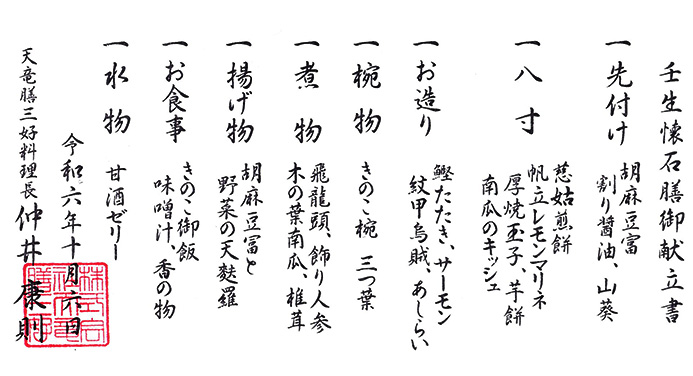 壬生懐石膳御献立書
一 先付け
胡麻豆富
割り醤油、山葵
一 八寸
慈姑煎餅
帆立レモンマリネ
厚焼玉子、芋餅
南瓜のキッシュ
一 お造り
鰹たたき、サーモン
紋甲烏賊、あしらい
一 椀物
きのこ椀 三つ葉
一 煮物
飛龍頭、飾り人参
木の葉南瓜、椎茸
一 揚げ物
胡麻豆富と
野菜の天麩羅
一 お食事
きのこ御飯
味噌汁、香の物
一 水物
甘酒ゼリー
令和六年十月六日
天竜膳三好料理長 仲井康則